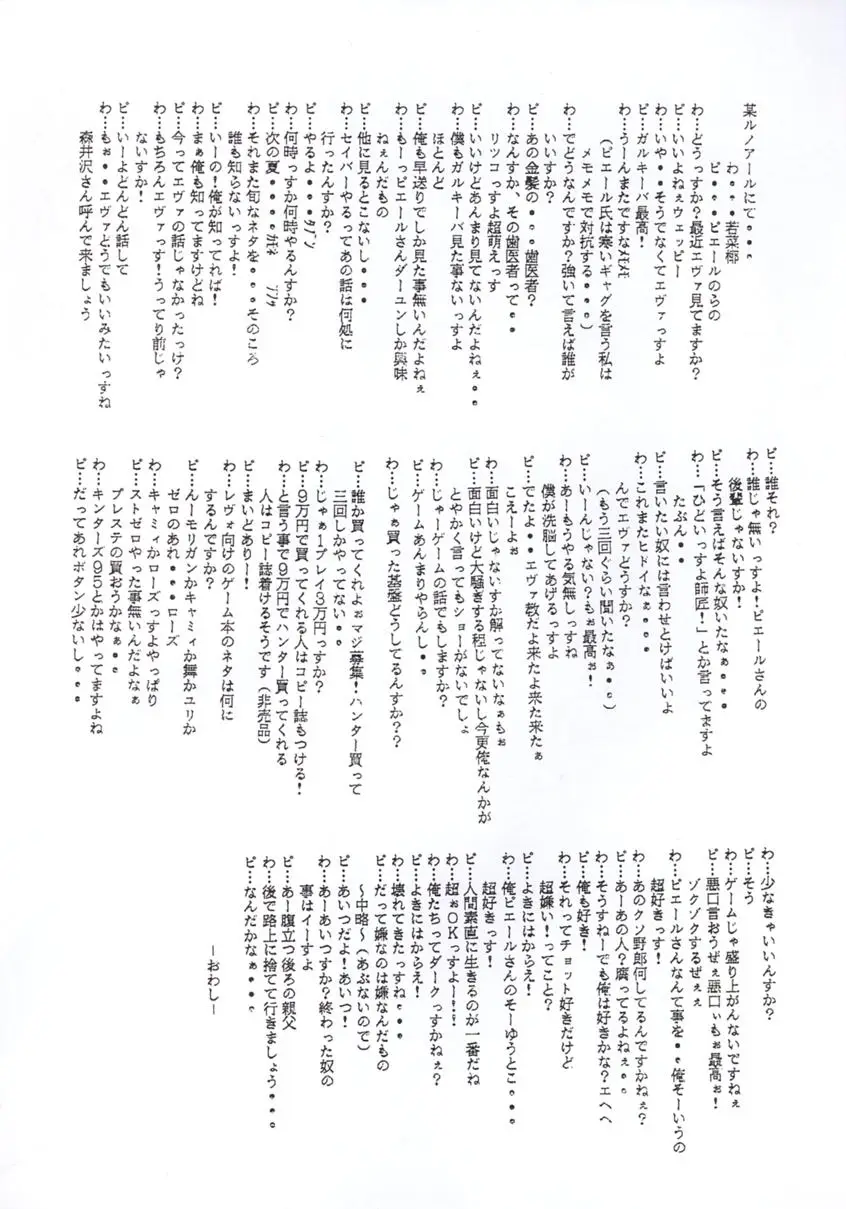 某ルノアールにて・・・
わ・・・若菜椰
ピ・・・ピエールのらの
わ…どうっすか？最近エヴァ見てますか？
ピ…いいよねぇウェッピー
わ…いや・・そうでなくてエヴァっすよ
ピ…ガルキーバ最高！
わ…うーんまたですなﾒﾓﾒﾓ
（ピエール氏は寒いギャグを言う私は
メモメモで対抗する・・・）
わ…でどうなんですか？強いて言えば誰が
いいすか？
ピ…あの金髪の・・・歯医者？
わ…なんすか、その歯医者って・・
リツコっすよ超萌えっす
ピ…いいけどあんまり見てないんだよねぇ・・
わ…僕もガルキーバ見た事ないっすよ
ほとんど
ピ…俺も早送りでしか見た事無いんだよねぇ
わ…もーっピエールさんダーユンしか興味
ねぇんだもの
ピ…他に見るとこないし・・・
わ…セイバーやるってあの話は何処に
行ったんすか？
ピ…やるよ・・・ﾀﾌﾞﾝ
わ…何時っすか何時やるんすか？
ピ…次の夏・・・
わ…それまた旬なネタを・・・そのころ
誰も知らないっすよ！
ピ…いーの！俺が知ってれば！
わ…まぁ俺も知ってますけどね
ピ…今ってエヴァの話じゃなかったっけ？
わ…もちろんエヴァっす！うってり前じゃ
ないすか！
ピ…いーよどんどん話して
わ…もぉ・・エヴァどうでもいいみたいっすね
森井沢さん呼んで来ましょう
ピ…誰それ？
わ…誰じゃ無いっすよ！ピエールさんの
後輩じゃないすか！
ピ…そう言えばそんな奴いたなぁ・・・
わ…「ひどいっすよ師匠！」とか言ってますよ
たぶん・・
ピ…言いたい奴には言わせとけばいいよ
わ…これまたヒドイなぁ・・・
んでエヴァどうすか？
（もう三回ぐらい聞いたなぁ・・）
ピ…いーんじゃない？もぉ最高ぉ！
わ…あーもうやる気無しっすね
僕が洗脳してあげるっすよ
ピ…でたよ・・エヴァ教だよ来たよ来た来たぁ
こえーよぉ
わ…面白いじゃないすか解ってないなぁもぉ
ピ…面白いけど大騒ぎする程じゃないし今更俺なんかが
とやかく言ってもショーがないでしょ
わ…じゃーゲームの話でもしますか？
ピ…ゲームあんまりやらんし・・
わ…じゃぁ買った基盤どうしてるんすか？？
ピ…誰か買ってくれよぉマジ募集！ハンター買って
三回しかやってない・・
わ…じゃぁープレイ３万円っすか？
ピ…９万円で買ってくれる人はコピー誌もつける！
わ…と言う事で９万円でハンター買ってくれる
人はコピー誌着けるそうです（非売品）
ピ…まいどありー！！
わ…レヴォ向けのゲーム本のネタは何に
するんですか？
ピ…んーモリガンかキャミィか舞かユリか
ゼロのあれ・・・ローズ
わ…キャミィかローズっすよやっぱり
ピ…ストゼロやった事無いんだよなぁ
プレステの買おうかなぁ・・
わ…キンターズ９５とかはやってますよね
ピ…だってあれボタン少ないし・・・
わ…少なきゃいいんすか？
ピ…そう
わ…ゲームじゃ盛り上がんないですねぇ
ピ…悪口言おうぜぇ悪口ぃもぉ最高ぉ！
ゾクゾクするぜぇぇ
わ…ピエールさんなんて事を・・俺そーいうの
超好きっす！
わ…あのクソ野郎何してるんですかねぇ？
ピ…あーあの人？腐ってるよねぇ・・
わ…そうすねーでも俺は好きかな？エヘヘ
ピ…俺も好き！
わ…それってチョット好きだけど
超嫌い！ってこと？
ピ…よきにはからえ！
わ…俺ピエールさんのそーゆうとこ・・・
超好きっす！
ピ…人間素直に生きるのが一番だね
わ…超ぉＯＫっすよー！！
ピ…よきにはからえ！
わ…俺たちってダークっすかねぇ？
ピ…よきにはからえ！
わ…壊れてきたっすね・・・
ピ…だって嫌なのは嫌なんだもの
～中略～（あぶないので）
ピ…あいつだよ！あいつ！
わ…あーあいつすか？終わった奴の
事はイーすよ
ピ…あー腹立つ後ろの親父
わ…後で路上に捨てて行きましょう・・・
ピ…なんだかなぁ・・・
－おわし－